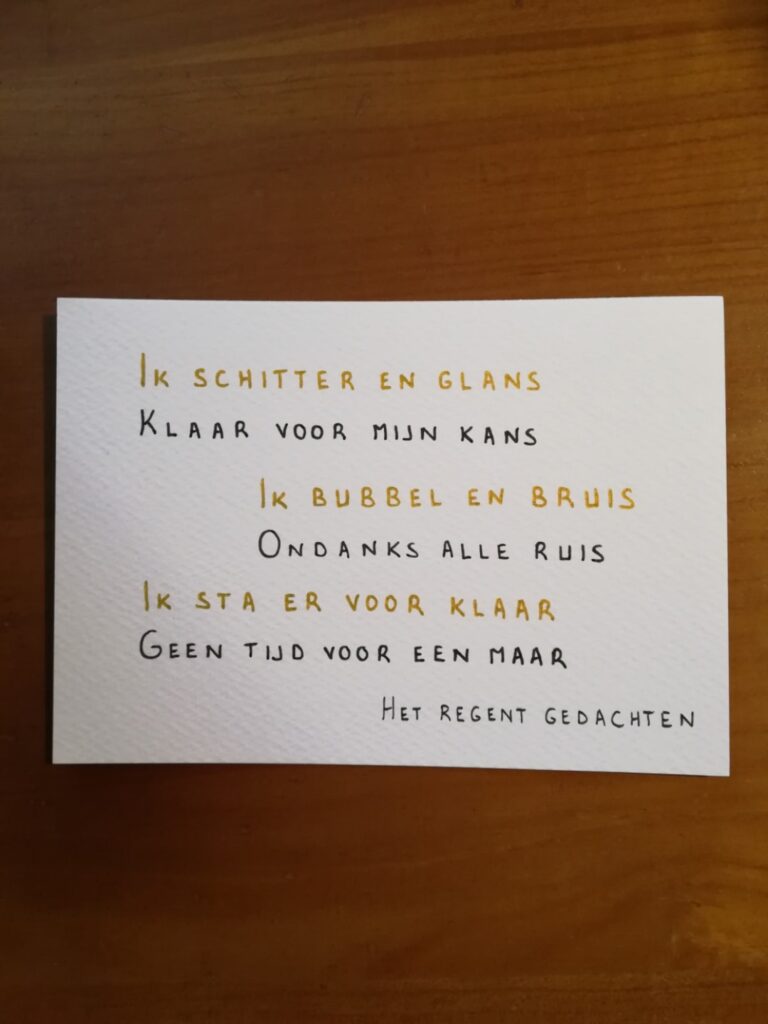 Ik schitter en glans
Klaar voor mijn kans
Ik bubbel en bruis
Ondanks alle ruis
Ik sta er voor klaar
Geen tijd voor een maar
Het regent gedachten